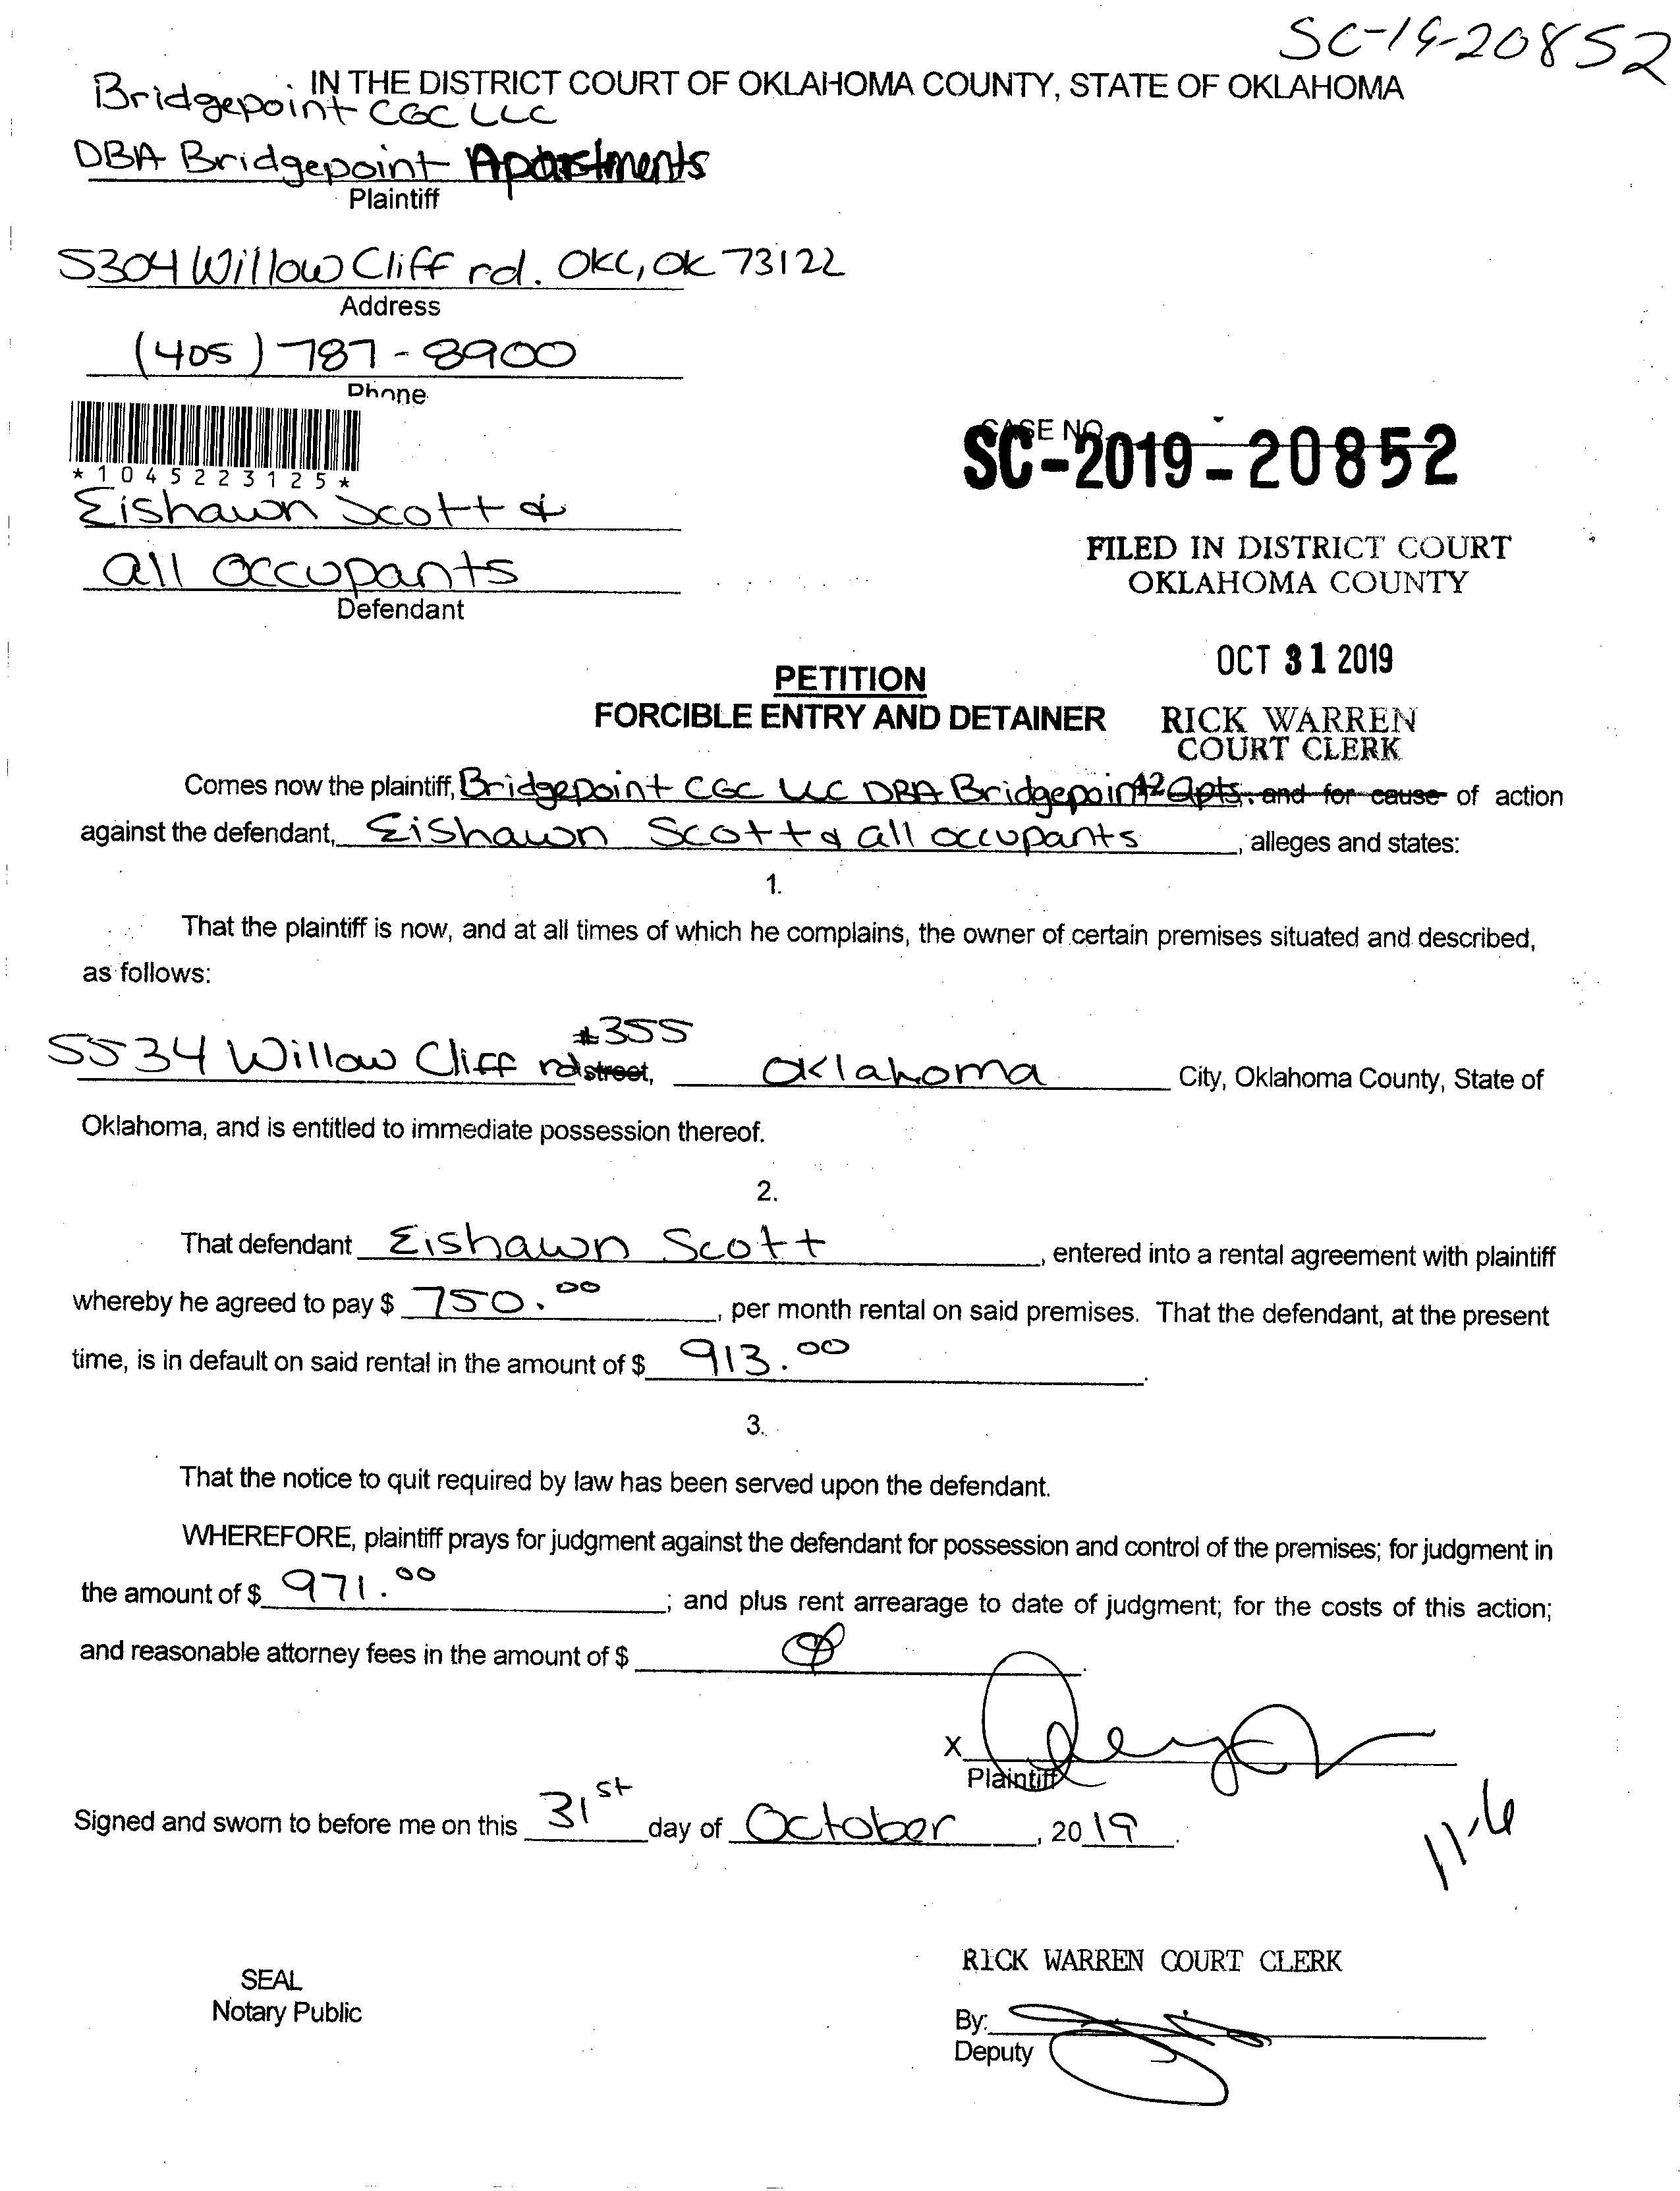 SC-19-20852
IN THE DISTRICT COURT OF OKLAHOMA COUNTY, STATE OF OKLAHOMA
Bridgepoint CGC LLC
DBA Bridgepoint Apartments
Plaintiff
5304 Willow Cliff rd. OKC, OK 73122
Address
(405) 787-8900
Phone
*1045223125*
CASE NO.
SC-2019-20852
Eishawn Scott &
all occupants
Defendant
FILED IN DISTRICT COURT
OKLAHOMA COUNTY
OCT 31 2019
PETITION
FORCIBLE ENTRY AND DETAINER
RICK WARREN
COURT CLERK
42
Comes now the plaintiff, Bridgepoint CGC LLC DBA Bridgepoint Apts, and for cause of action
against the defendant, Eishawn Scott & all occupants, alleges and states:
1.
That the plaintiff is now, and at all times of which he complains, the owner of certain premises situated and described,
as follows:
#355
5534 Willow Cliff rd street, Oklahoma City, Oklahoma County, State of
Oklahoma, and is entitled to immediate possession thereof.
2.
That defendant Eishawn Scott, entered into a rental agreement with plaintiff
whereby he agreed to pay $ 750.00, per month rental on said premises. That the defendant, at the present
time, is in default on said rental in the amount of $ 913.00.
3.
That the notice to quit required by law has been served upon the defendant.
WHEREFORE, plaintiff prays for judgment against the defendant for possession and control of the premises; for judgment in
the amount of $ 971.00; and plus rent arrearage to date of judgment; for the costs of this action;
and reasonable attorney fees in the amount of $ .
X
Plaintiff
Signed and sworn to before me on this 31st day of October, 2019.
11-6
RICK WARREN COURT CLERK
SEAL
Notary Public
By:
Deputy